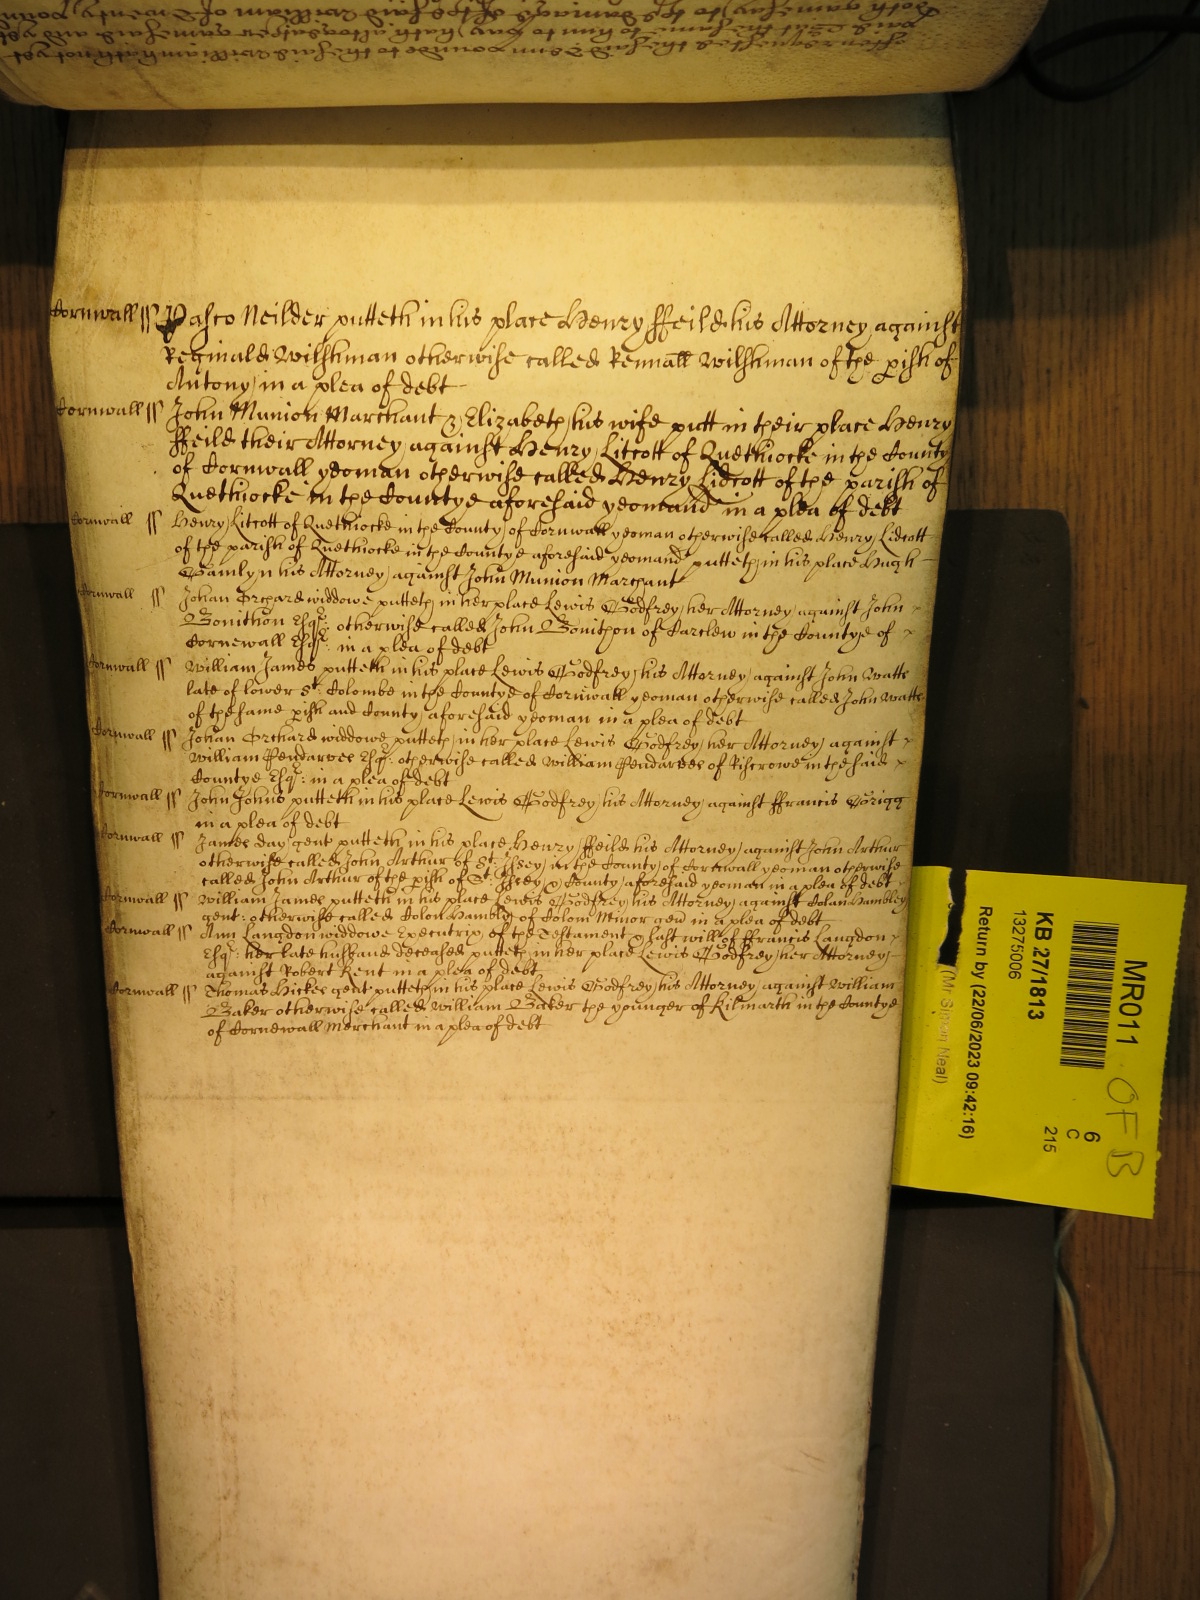 both
Cornwall ss Pasco Neilder putteth in his place Henry ffeild his Attorney against
Reginald Wilshman otherwise called Rennall Wilshman of the pish of
Antony in a plea of debt
Cornwall ss John Munion Marchant & Elizabeth his wife putt in their place Henry
ffeild their Attorney against Henry Litcott of Quethiocke in the County
of Cornwall yeoman otherwise called Henry Lidcott of the parish of
Quethiocke in the Countye aforesaid yeomand in a plea of debt
Cornwall ss Henry Litcott of Quethiocke in the County of Cornwall yeoman otherwise called Henry Lidcott
of the parish of Quethiocke in the Countye aforesaid yeomand putteth in his place Hugh
Gamlyn his Attorney against John Munion Marchant
Cornwall ss Johan Orchard widdowe putteth in her place Lewis Godfrey her Attorney against John
Bonithon Esqr: otherwise called John Bonithon of Carclew in the Countye of
Cornewall Esqr: in a plea of debt
Cornwall ss William James putteth in his place Lewis Godfrey his Attorney against John Watte
late of lower St: Colombe in the Countye of Cornwall yeoman otherwise called John Watte
of the same pish and County aforesaid yeoman in a plea of debt
Cornwall ss Johan Orchard widdowe putteth in her place Lewis Godfrey her Attorney against
William Pendarves Esqr: otherwise called William Pendarves of Riscrowe in the said
Countye Esqr: in a plea of debt
Cornwall ss John Johns putteth in his place Lewis Godfrey his Attorney against ffrancis Grigg
in a plea of debt
Cornwall ss James day gent putteth in his place Henry ffeild his Attorney against John Arthur
otherwise called John Arthur of St: Issey in the County of Cornwall yeoman otherwise
called John Arthur of the pish of St: Issey & County aforesaid yeoman in a plea of debt
Cornwall ss William James putteth in his place Lewis Godfrey his Attorney against Colan Hambley
gent: otherwise called Colon Hambly of Colom Minor gen in a plea of debt
Cornwall ss Ann Langdon widdowe Executrix of the Testament & last will of ffrancis Langdon
Esqr: her late husband deceased putteth in her place Lewis Godfrey her Attorney
against Robert Kent in a plea of debt
Cornwall ss Thomas Hickes gent putteth in his place Lewis Godfrey his Attorney against William
Baker otherwise called William Baker the younger of Kilmarth in the Countye
of Cornewall Merchant in a plea of debt
MR011 OFB
6
C
215
KB 27/1813
13275006
Return by (22/06/2023 09:42:16)
(Mr Simon Neal)